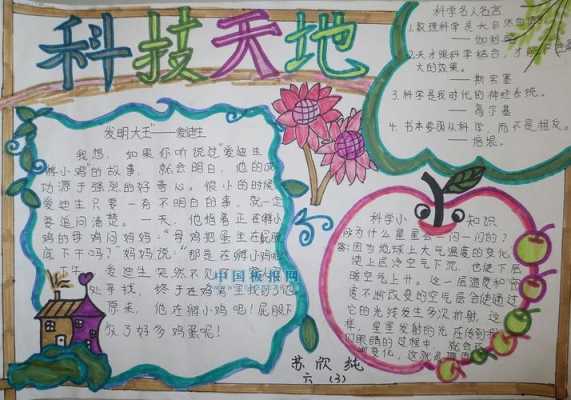 科技天地
发明大王"——爱迪生
我想，如果你听说过"爱迪生
孵小鸡"的故事，就会明白，他的成
功源于强烈的好奇心。很小的时候
爱迪生只要一有不明白的事，就一定
要追问清楚。一天，他指着正在孵小
鸡的母鸡问妈妈："母鸡把蛋坐在屁股
底下干吗？"妈妈说："那是在孵小鸡呢
爱迪生突然不见了
处寻找，终于在鸡窝里找到了他
原来，他在孵小鸡呢！屁股下
放了好多鸡蛋呢！
中国板报网
科学名人名言
1.数理科学是大自然
——伽利略
2.天才跟科学结合，才能
大的效果。
——斯宾塞
3.科学是我时代的神经系统。
——高尔基
4.书本要函从科学，而不是相反。
——培根。
科学小知识
为什么星星会一闪一闪的？
答：因为地球上大气温度的变化
使上层冷空气下沉，也使下层
暖空气上升。这一层温度和密
度不断改变的空气层会使通过
它的光线发生多次折射，这
样，星星发射的光在传到
们眼睛的过程中，就会
变化，这就
苏欣纯
六（3）